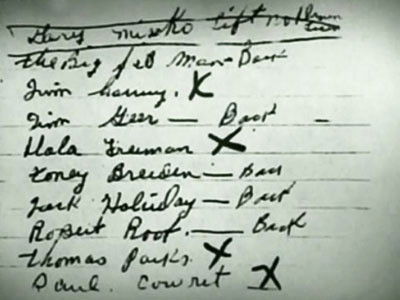 Harry misko left nothin
the Big fed Man - Back
Jim lanny. X
Jim Geer — Back —
Hala Freeman X
Toney Breeden — Back
Jack Holiday — Back
Robert Root. — Back
Thomas Parks. X
Paul. Cowret X